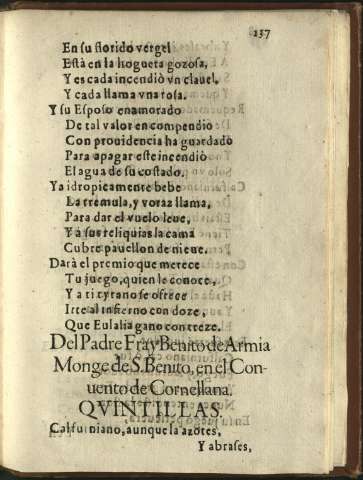 237
En su florido vergel
Està en la hoguera gozosa,
Y es cada incendiò vn clauel,
Y cada llama vna rosa.
Y su Esposo enamorado
De tal valor en compendio
Con prouidencia ha guardadò
Para apagar este incendiò
El agua de su costado.
Ya idropicamente bebe
La tremula, y voraz llama,
Para dar el vuelo leue,
Y à sus reliquias la cama
Cubre pauellon de nieue.
Darà el premio que merece
Tu juego, quien le conoce,
Y a ti tyrano se ofrece
Irte al infierno con doze,
Que Eulalia gano con treze.
Del Padre Fray Benito de Armia
Monge de S. Benito, en el Con-
uento de Cornellana.
QVINTILLAS.
Calfurniano, aunque la azotes,
Y abrases,